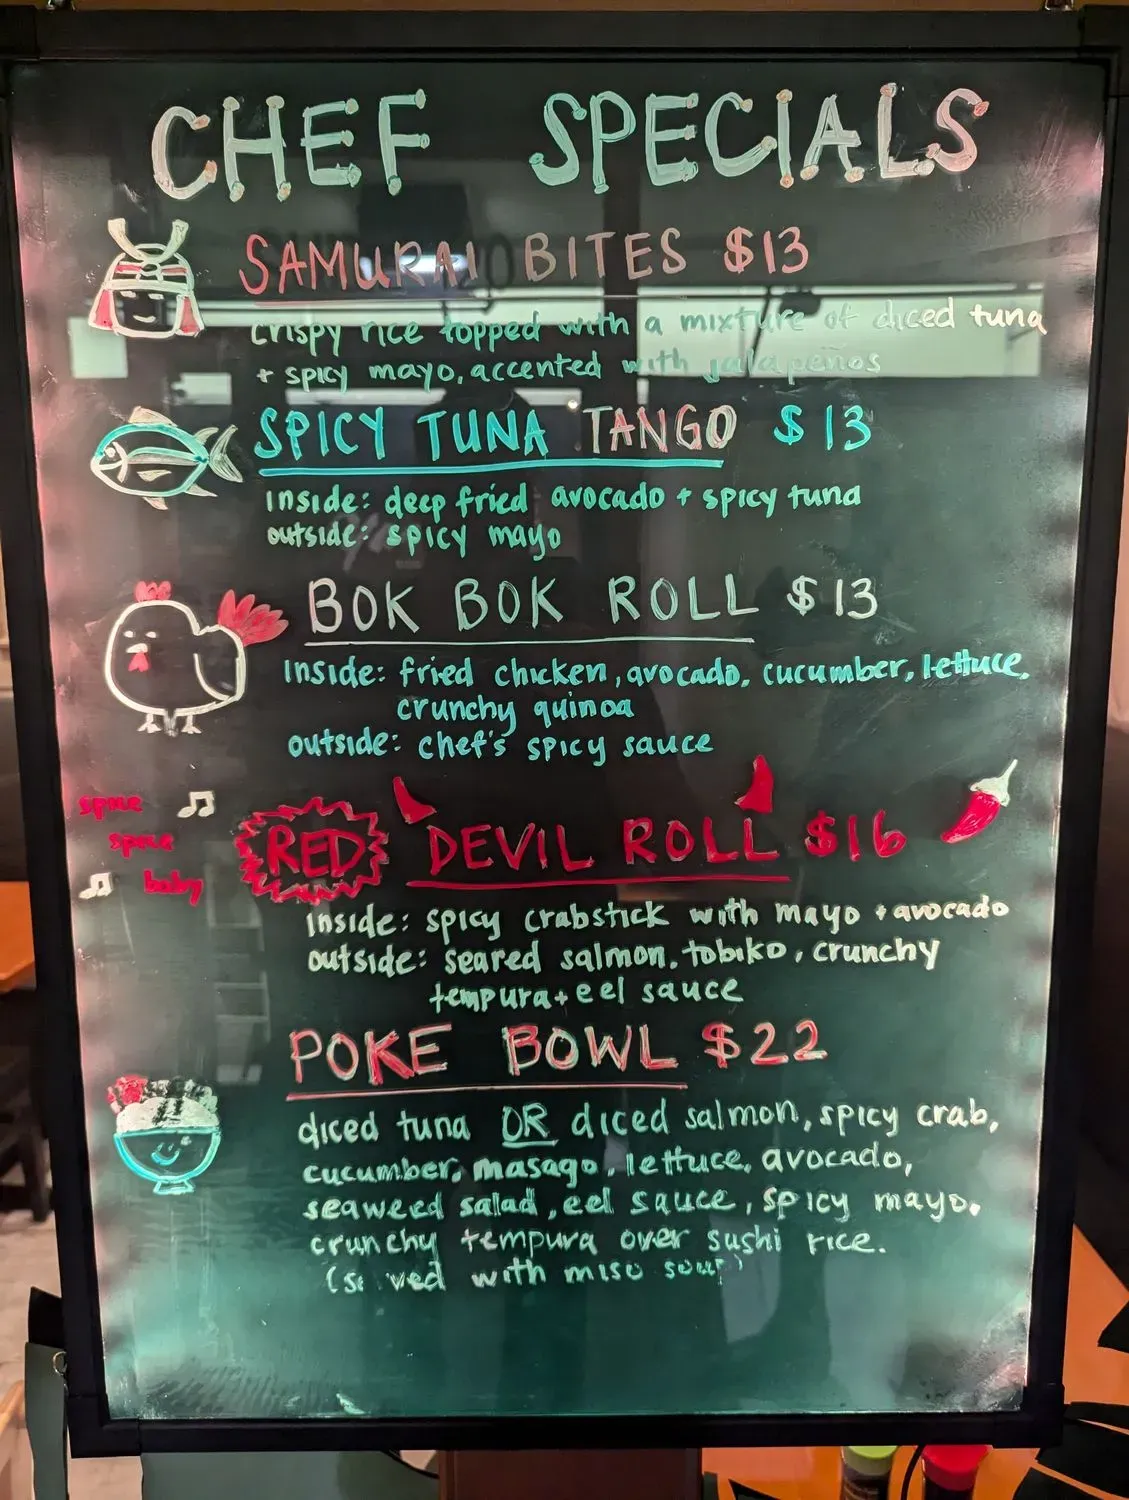 CHEF SPECIALS
SAMURAI BITES $13
crispy rice topped with a mixture of diced tuna
+ spicy mayo, accented with jalapeños
SPICY TUNA TANGO $13
inside: deep fried avocado + spicy tuna
outside: spicy mayo
BOK BOK ROLL $13
inside: fried chicken, avocado, cucumber, lettuce,
crunchy quinoa
outside: chef's spicy sauce
spice
spice
baby
RED DEVIL ROLL $16
inside: spicy crabstick with mayo + avocado
outside: seared salmon, tobiko, crunchy
tempura + eel sauce
POKE BOWL $22
diced tuna OR diced salmon, spicy crab,
cucumber, masago, lettuce, avocado,
seaweed salad, eel sauce, spicy mayo,
crunchy tempura over sushi rice.
(served with miso soup)